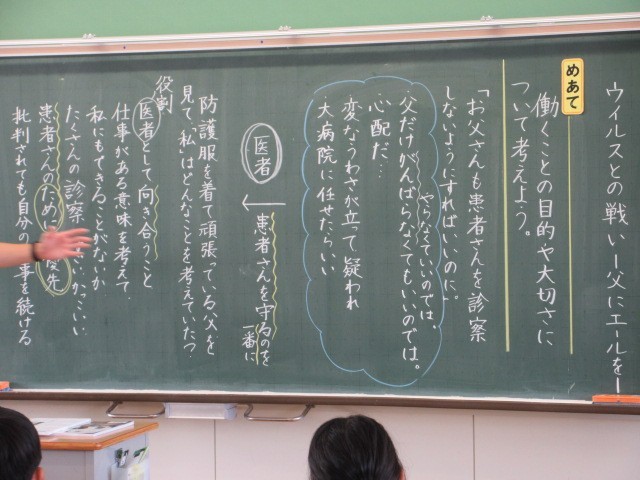 ウイルスとの戦いー父にエールをー
めあて
働くことの目的や大切さに
ついて考えよう。
「お父さんも患者さんを診察
しないようにすればいいのに。」
やらなくていいのでは。
父だけがんばらなくてもいいのでは。
心配だ…
変なうわさが立って疑われ
大病院に任せたらいい
医者
患者さんを守るのを
一番に
防護服を着て頑張っている父を
見て、「私はどんなことを考えていたつ
役割
医者として向き合うこと
仕事がある意味を考えて、
私にもできることがないか
たくさんの診察 かっこいい
患者さんのため 優先
批判されても自分の 事を続ける